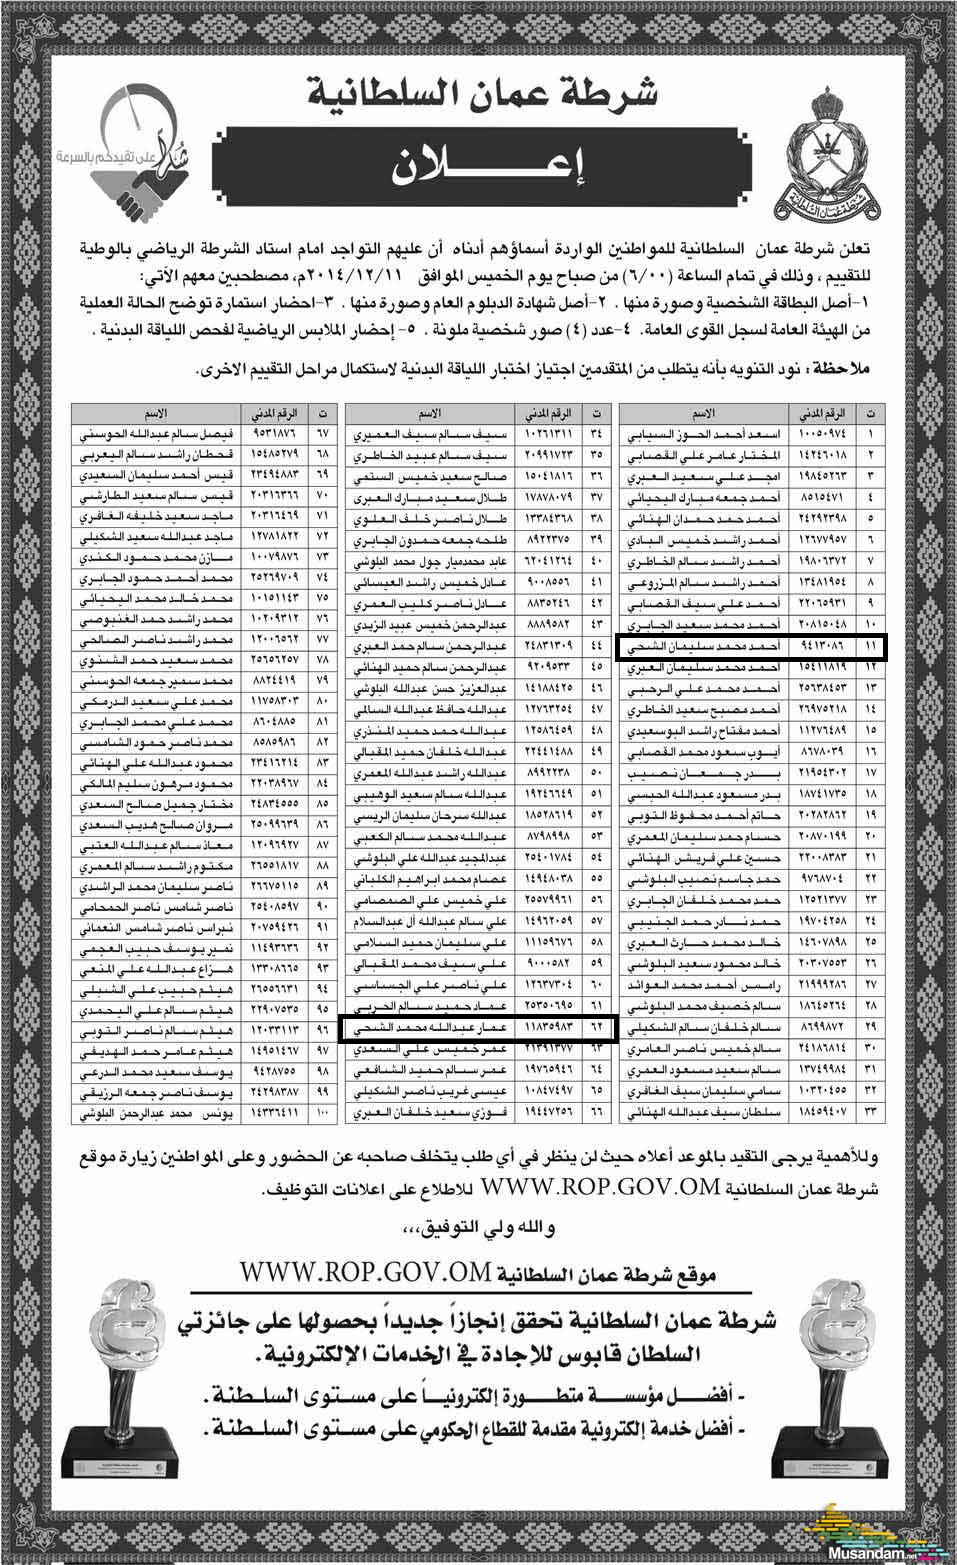 شرطة عمان السلطانية
إعـــــــلان
شكراً على تقيدكم بالسرعة
شرطة عمان السلطانية
تعلن شرطة عمان السلطانية للمواطنين الواردة أسماؤهم أدناه أن عليهم التواجد امام استاد الشرطة الرياضي بالوطية
للتقييم ، وذلك في تمام الساعة (٦/٠٠) من صباح يوم الخميس الموافق ٢٠١٤/١٢/١١م، مصطحبين معهم الآتي:
١-أصل البطاقة الشخصية وصورة منها . ٢-أصل شهادة الدبلوم العام وصورة منها . ٣-احضار استمارة توضح الحالة العملية
من الهيئة العامة لسجل القوى العامة. ٤-عدد (٤) صور شخصية ملونة . ٥- إحضار الملابس الرياضية لفحص اللياقة البدنية .
ملاحظة : نود التنويه بأنه يتطلب من المتقدمين اجتياز اختبار اللياقة البدنية لاستكمال مراحل التقييم الاخرى.
ت الرقم المدني الاسم
١ ١٠٠٥٠٩٧٤ اسعد أحمد الحوز السيابي
٢ ١٤٢٤٦٠١٨ المختار عامر علي القصابي
٣ ١٩٨٤٥٢٦٣ امجد علي سعيد العبري
٤ ٨٥١٥٤٧١ أحمد جمعه مبارك اليحيائي
٥ ٢٤٢٩٢٣٩٨ أحمد حمد حمدان الهنائي
٦ ١٢٦٧٧٩٥٧ أحمد راشد خميس البادي
٧ ١٩٨٠٦٣٧٢ أحمد راشد سالم الخاطري
٨ ١٣٤٨١٩٥٤ أحمد راشد سالم المزروعي
٩ ٢٢٠٦٥٩٣١ أحمد علي سيف القصابي
١٠ ٢٠٨١٥٠٤٨ أحمد محمد سعيد الجابري
١١ ٩٤١٣٠٨٦ أحمد محمد سليمان الشحي
١٢ ١٥٤١١٨١٩ أحمد محمد سليمان العبري
١٣ ٢٥٦٣٨٤٥٣ أحمد محمد علي الرحبي
١٤ ٢٦٩٧٥٢١٨ أحمد مصبح سعيد الخاطري
١٥ ١١٢٧٦٤٨٩ أحمد مفتاح راشد البوسعيدي
١٦ ٨٦٧٨٠٣٩ أيوب سعود محمد القصابي
١٧ ٢١٩٥٤٣٠٢ بدر جمعان نصيب
١٨ ١٨٧٤١٧٣٥ بدر مسعود عبدالله الحبسي
١٩ ٢٠٢٨٢٨٦٢ حاتم أحمد محفوظ التوبي
٢٠ ٢٠٨٧٠١٩٩ حسام حمد سليمان المعمري
٢١ ٢٢٠٠٨٣٨٣ حسين علي فريش الهنائي
٢٢ ٩٧٦٨٧٠٤ حمد جاسم نصيب البلوشي
٢٣ ١٢٥٢١٣٧٧ حمد محمد خلفان الجابري
٢٤ ١٩٧٠٤٢٥٨ حمد نادر حمد الجنيبي
٢٥ ١٤٦٠٧٨٩٨ خالد محمد حارث العبري
٢٦ ٢٠٣٠٧٥٥٣ خالد محمود سعيد البلوشي
٢٧ ٢١٩٩٩٢٨٦ رامس أحمد محمد العوائد
٢٨ ١٨٦٤٥٢٦٤ سالم خصيف محمد البلوشي
٢٩ ٨٦٩٩٨٧٢ سالم خلفان سالم الشكيلي
٣٠ ٢٤١٨٦٨١٤ سالم خميس ناصر العامري
٣١ ١٣٧٤٩٩٨٤ سالم سعيد مسعود العمري
٣٢ ١٠٣٢٠٤٥٥ سامي سليمان سيف الغافري
٣٣ ١٨٤٥٩٤٠٧ سلطان سيف عبدالله الهنائي
ت الرقم المدني الاسم
٣٤ ١٠٢٦١٣١١ سيف سالم سيف العميري
٣٥ ٢٠٩٩١٧٢٣ سيف سالم عبيد الخاطري
٣٦ ١٥٠٤١٨١٦ صالح سعيد خميس الستمي
٣٧ ١٧٨٧٨٠٧٩ طلال سعيد مبارك العبري
٣٨ ١٣٣٨٤٣٦٨ طلال ناصر خلف العلوي
٣٩ ٨٩٢٢٣٧٥ طلحه جمعه حمدون الجابري
٤٠ ٦٢٠٤١٢٦٤ عابد محمدميار جول محمد البلوشي
٤١ ٩٠٠٨٥٥٦ عادل خميس راشد العيسائي
٤٢ ٨٨٣٥٢٤٦ عادل ناصر كليب العمري
٤٣ ٨٨٨٩٥٨٢ عبدالرحمن خميس عبيد الزيدي
٤٤ ٢٤٨٣١٣٠٩ عبدالرحمن سالم حمد العبري
٤٥ ٩٢٠٩٥٣٣ عبدالرحمن سالم حميد الهنائي
٤٦ ١٤١٨٨٤٢٥ عبدالعزيز حسن عبدالله البلوشي
٤٧ ١٢٧٦٣٢٥٤ عبدالله حافظ عبدالله السالمي
٤٨ ١٢٥٨٦٤٥٩ عبدالله حمد حميد المنذري
٤٩ ٢٢٤٤١٤٨٨ عبدالله خلفان حميد المقبالي
٥٠ ٨٩٩٢٢٣٨ عبدالله راشد عبدالله المعمري
٥١ ١٩٢٤٦٦٤٩ عبدالله سالم سعيد الوهيبي
٥٢ ١٨٥٢٨٦١٩ عبدالله سرحان سليمان الريسي
٥٣ ٨٧٩٨٩٩٨ عبدالله محمد سالم الكعبي
٥٤ ٢٥٤٠١٧٨٤ عبدالمجيد عبدالله علي البلوشي
٥٥ ١٤٩٤٨٠٣٨ عصام محمد ابراهيم الكلباني
٥٦ ٢٥٥٧٩٩٦١ علي خميس علي الصمصامي
٥٧ ١٤٩٦٢٠٥٩ علي سالم عبدالله آل عبدالسلام
٥٨ ١١١٥٩٦٧٦ علي سليمان حميد السلامي
٥٩ ٩٠٠٠٥٨٢ علي سيف محمد المقبالي
٦٠ ١٢٦٣٧٣٠٤ علي ناصر علي الجساسي
٦١ ٢٥٣٥٠٦٩٥ عماد حميد سالم الحربي
٦٢ ١١٨٣٥٩٨٣ عمار عبدالله محمد الشحي
٦٣ ٢١٣٩١٣٧٧ عمر خميس علي السعدي
٦٤ ١٩٧٥٩٤٦ عمر سالم حميد الشافعي
٦٥ ١٠٨٤٧٤٩٧ عيسى غريب ناصر الشكيلي
٦٦ ١٩٤٤٧٢٥٦ فوزي سعيد خلفان العبري
ت الرقم المدني الاسم
٦٧ ٩٥٣١٨٧٦ فيصل سالم عبدالله الحوسني
٦٨ ١٥٤٨٥٢٧٩ قحطان راشد سالم اليعربي
٦٩ ٢٣٤٩٤٨٨٣ قيس أحمد سليمان السعيدي
٧٠ ٢٠٣١٦٣٦٦ قيس سالم سعيد الطارشي
٧١ ٢٠٣١٦٤٦٩ ماجد سعيد خليفه الغافري
٧٢ ١٢٧٨١٨٢٢ ماجد عبدالله سعيد الشكيلي
٧٣ ١٠٠٧٩٨٧٦ مازن محمد حمود الكندي
٧٤ ٢٥٢٦٩٧٠٩ محمد أحمد حمود الجابري
٧٥ ١٠١٥١١٤٣ محمد خالد محمد اليحيائي
٧٦ ١٠٢٠٩٣١٢ محمد راشد حمد الغنبوصي
٧٧ ١٢٠٠٦٥٦٢ محمد راشد ناصر الصالحي
٧٨ ٢٥٦٥٦٢٥٧ محمد سعيد حمد الشنوي
٧٩ ٨٨٢٤٤١٩ محمد سمير جمعه الحوسني
٨٠ ١١٧٥٨٣٠٣ محمد علي سعيد الدرمكي
٨١ ٨٦٠٤٨٨٥ محمد علي محمد الجابري
٨٢ ٨٥٨٥٩٨٦ محمد ناصر حمود الشامسي
٨٣ ٢٣٤١٦٢١٤ محمود عبدالله علي الهنائي
٨٤ ٢٢٠٣٨٩٦٧ محمود مرهون سليم المالكي
٨٥ ٢٤٨٣٤٥٥٥ مختار جميل صالح السعدي
٨٦ ٢٥٠٩٩٦٣٩ مروان صالح هديب السعدي
٨٧ ١٢٠٩٦٩٢٧ معاذ سالم عبدالله العتبي
٨٨ ٢٦٥٥١٨١٧ مكتوم راشد سالم المعمري
٨٩ ٢٦٦٧٥١١٥ ناصر سليمان محمد الراشدي
٩٠ ٢٥٤٠٨٥٩٧ ناصر شامس ناصر الحمحامي
٩١ ٢٠٧٥٩٤٢٦ نبراس ناصر شامس النعماني
٩٢ ١١٤٩٣٦٣٦ نمير يوسف حبيب العجمي
٩٣ ١٣٣٠٨٦٦٥ هزاع عبدالله علي المنعي
٩٤ ٢٦٥٥٦٦٣١ هيثم حبيب علي الشبلي
٩٥ ٢٢٩٠٧٥٣٥ هيثم سالم محمد اليعقوبي
٩٦ ١٢٠٣٣١١٣ هيثم سالم ناصر التوبي
٩٧ ١٤٩٥١٤٦٧ هيثم عامر حمد الهديفي
٩٨ ٩٤٢٨٧٥٥ يوسف سعيد محمد الدرعي
٩٩ ٢٤٢٩٨٣٨٧ يوسف ناصر جمعه الرزيقي
١٠٠ ١٤٣٣٦٤١١ يونس محمد عبدالرحمن البلوشي
وللأهمية يرجى التقيد بالموعد أعلاه حيث لن ينظر في أي طلب يتخلف صاحبه عن الحضور وعلى المواطنين زيارة موقع
شرطة عمان السلطانية WWW.ROP.GOV.OM للاطلاع على اعلانات التوظيف.
والله ولي التوفيق،،،
موقع شرطة عمان السلطانية WWW.ROP.GOV.OM
شرطة عمان السلطانية تحقق إنجازاً جديداً بحصولها على جائزتي
السلطان قابوس للاجادة في الخدمات الإلكترونية.
- أفضل مؤسسة متطورة إلكترونياً على مستوى السلطنة .
- أفضل خدمة إلكترونية مقدمة للقطاع الحكومي على مستوى السلطنة .
Musandam.net